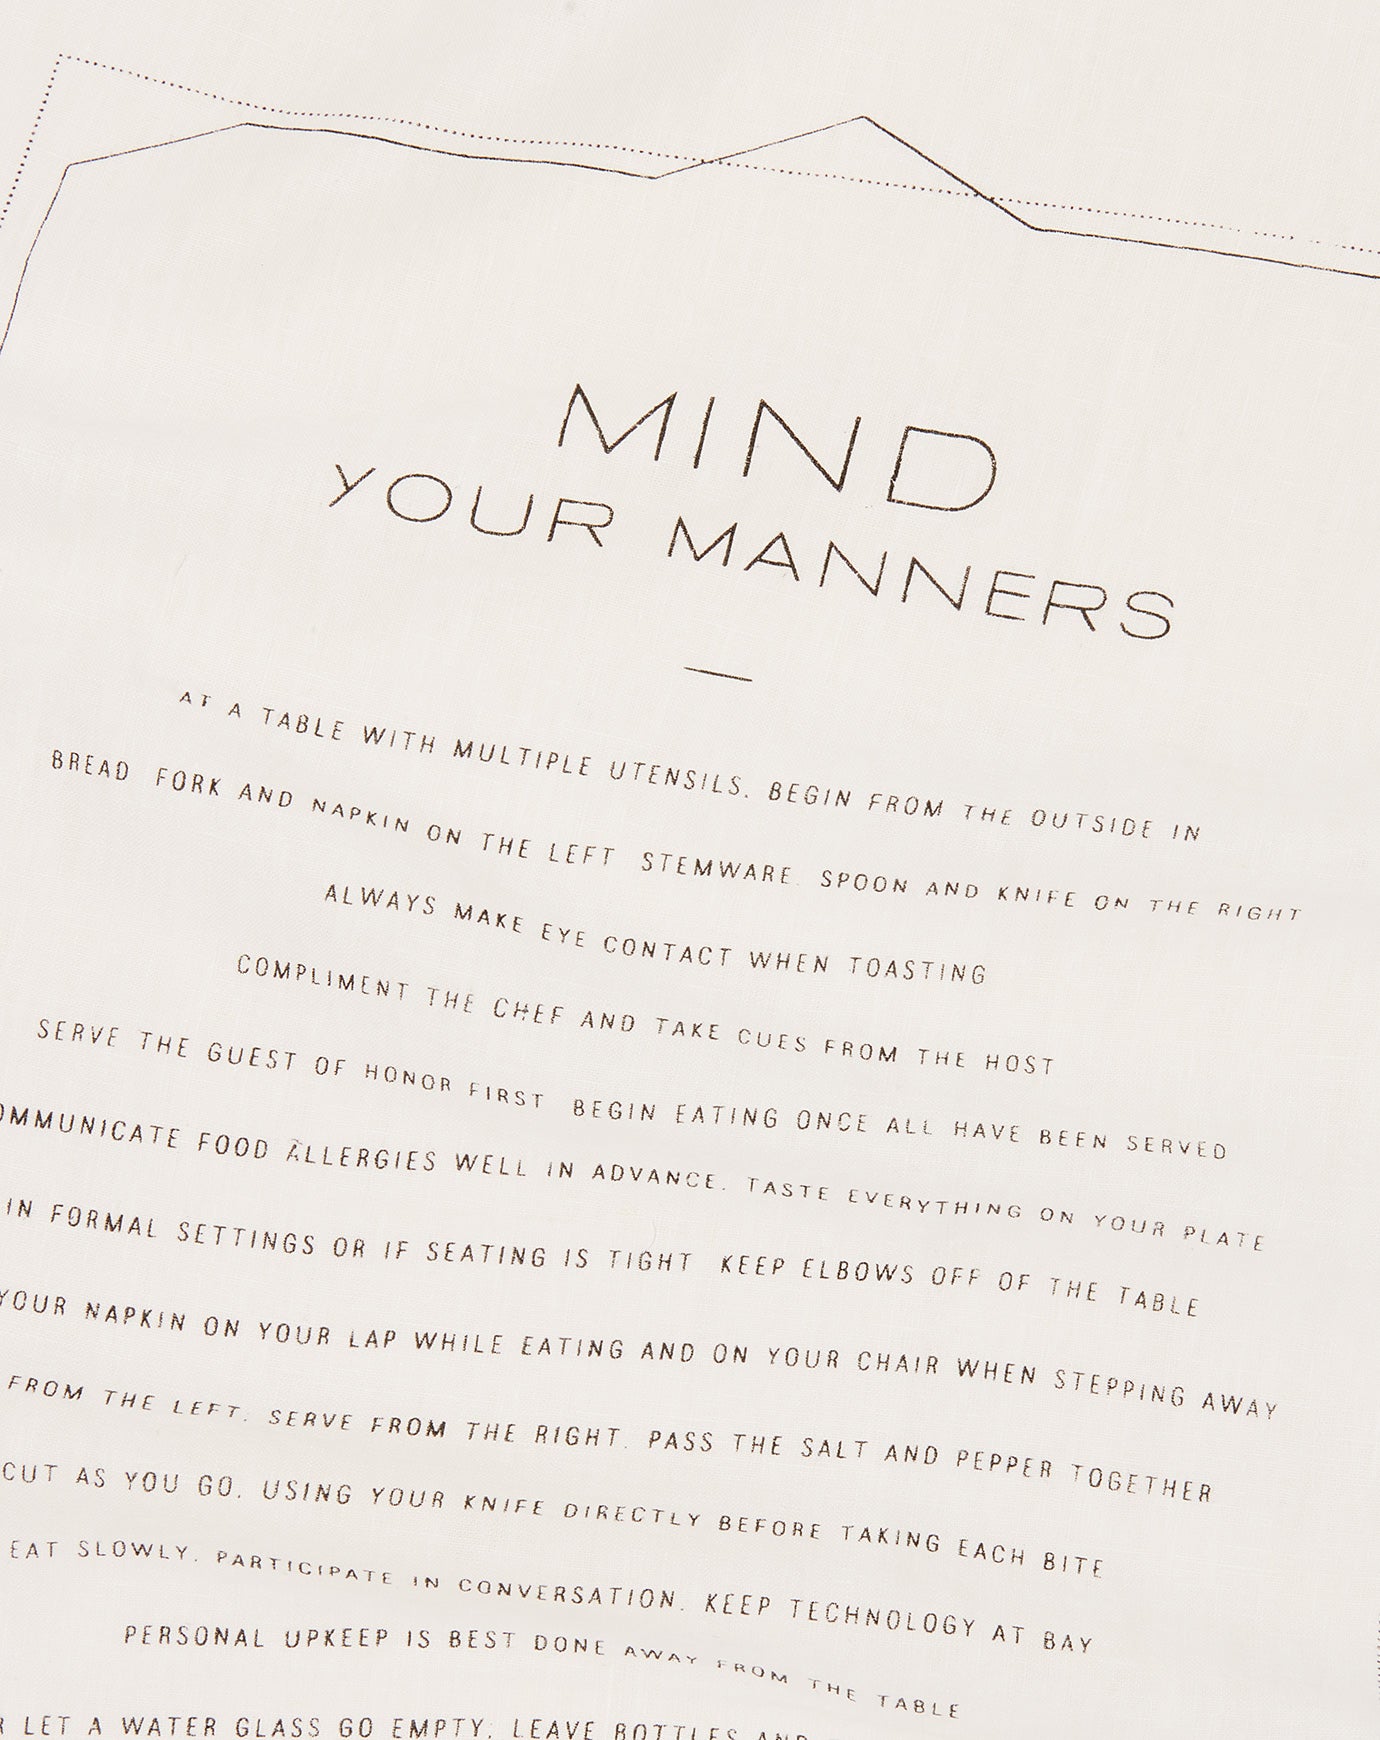 MIND
YOUR MANNERS
AT A TABLE WITH MULTIPLE UTENSILS, BEGIN FROM THE OUTSIDE IN
BREAD FORK AND NAPKIN ON THE LEFT STEMWARE, SPOON AND KNIFE ON THE RIGHT
ALWAYS MAKE EYE CONTACT WHEN TOASTING
COMPLIMENT THE CHEF AND TAKE CUES FROM THE HOST
SERVE THE GUEST OF HONOR FIRST BEGIN EATING ONCE ALL HAVE BEEN SERVED
OMMUNICATE FOOD ALLERGIES WELL IN ADVANCE. TASTE EVERYTHING ON YOUR PLATE
IN FORMAL SETTINGS OR IF SEATING IS TIGHT KEEP ELBOWS OFF OF THE TABLE
YOUR NAPKIN ON YOUR LAP WHILE EATING AND ON YOUR CHAIR WHEN STEPPING AWAY
FROM THE LEFT, SERVE FROM THE RIGHT. PASS THE SALT AND PEPPER TOGETHER
CUT AS YOU GO, USING YOUR KNIFE DIRECTLY BEFORE TAKING EACH BITE
EAT SLOWLY, PARTICIPATE IN CONVERSATION, KEEP TECHNOLOGY AT BAY
PERSONAL UPKEEP IS BEST DONE AWAY FROM THE TABLE
R LET A WATER GLASS GO EMPTY; LEAVE BOTTLES AND